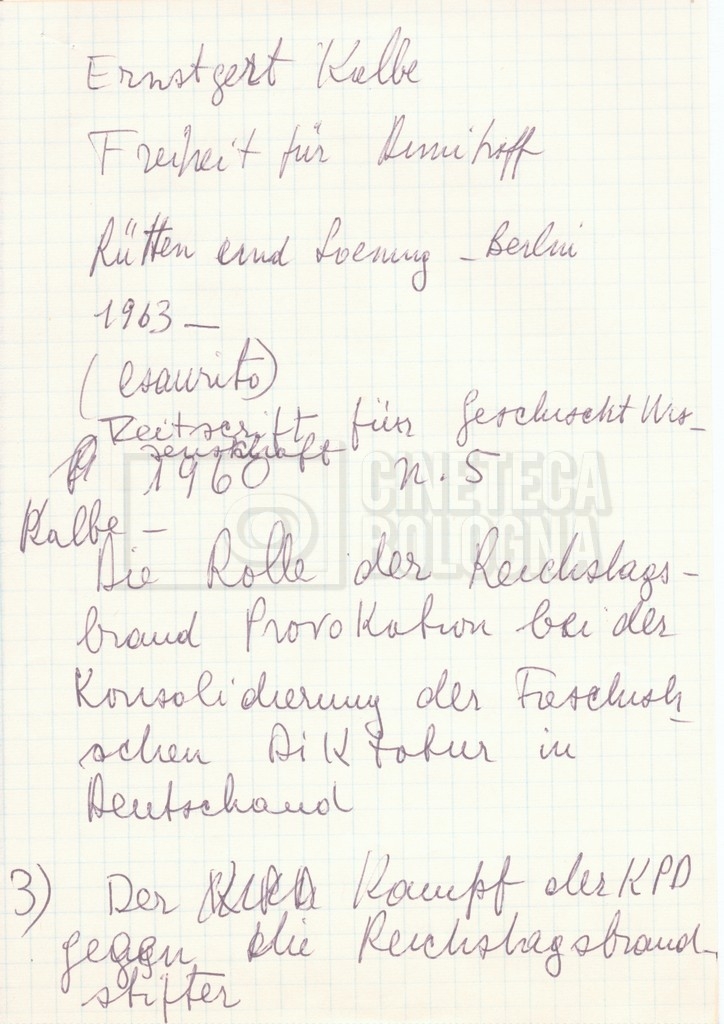 Ernstgert Kalbe
Freiheit für Dimitroff
Rütten und Loening - Berlin
1963 —
(esaurito)
Zeitscrift für Geschischt Wis-
senschaft
1960 n. 5
Kalbe -
Die Rolle der Reichstags-
brand Provokation bei der
Konsolidierung der Faschisti-
schen Diktatur in
Deutschand
3) Der Kampf der KPD
gegen die Reichstagsbrand-
stifter
CINETECA
BOLOGNA